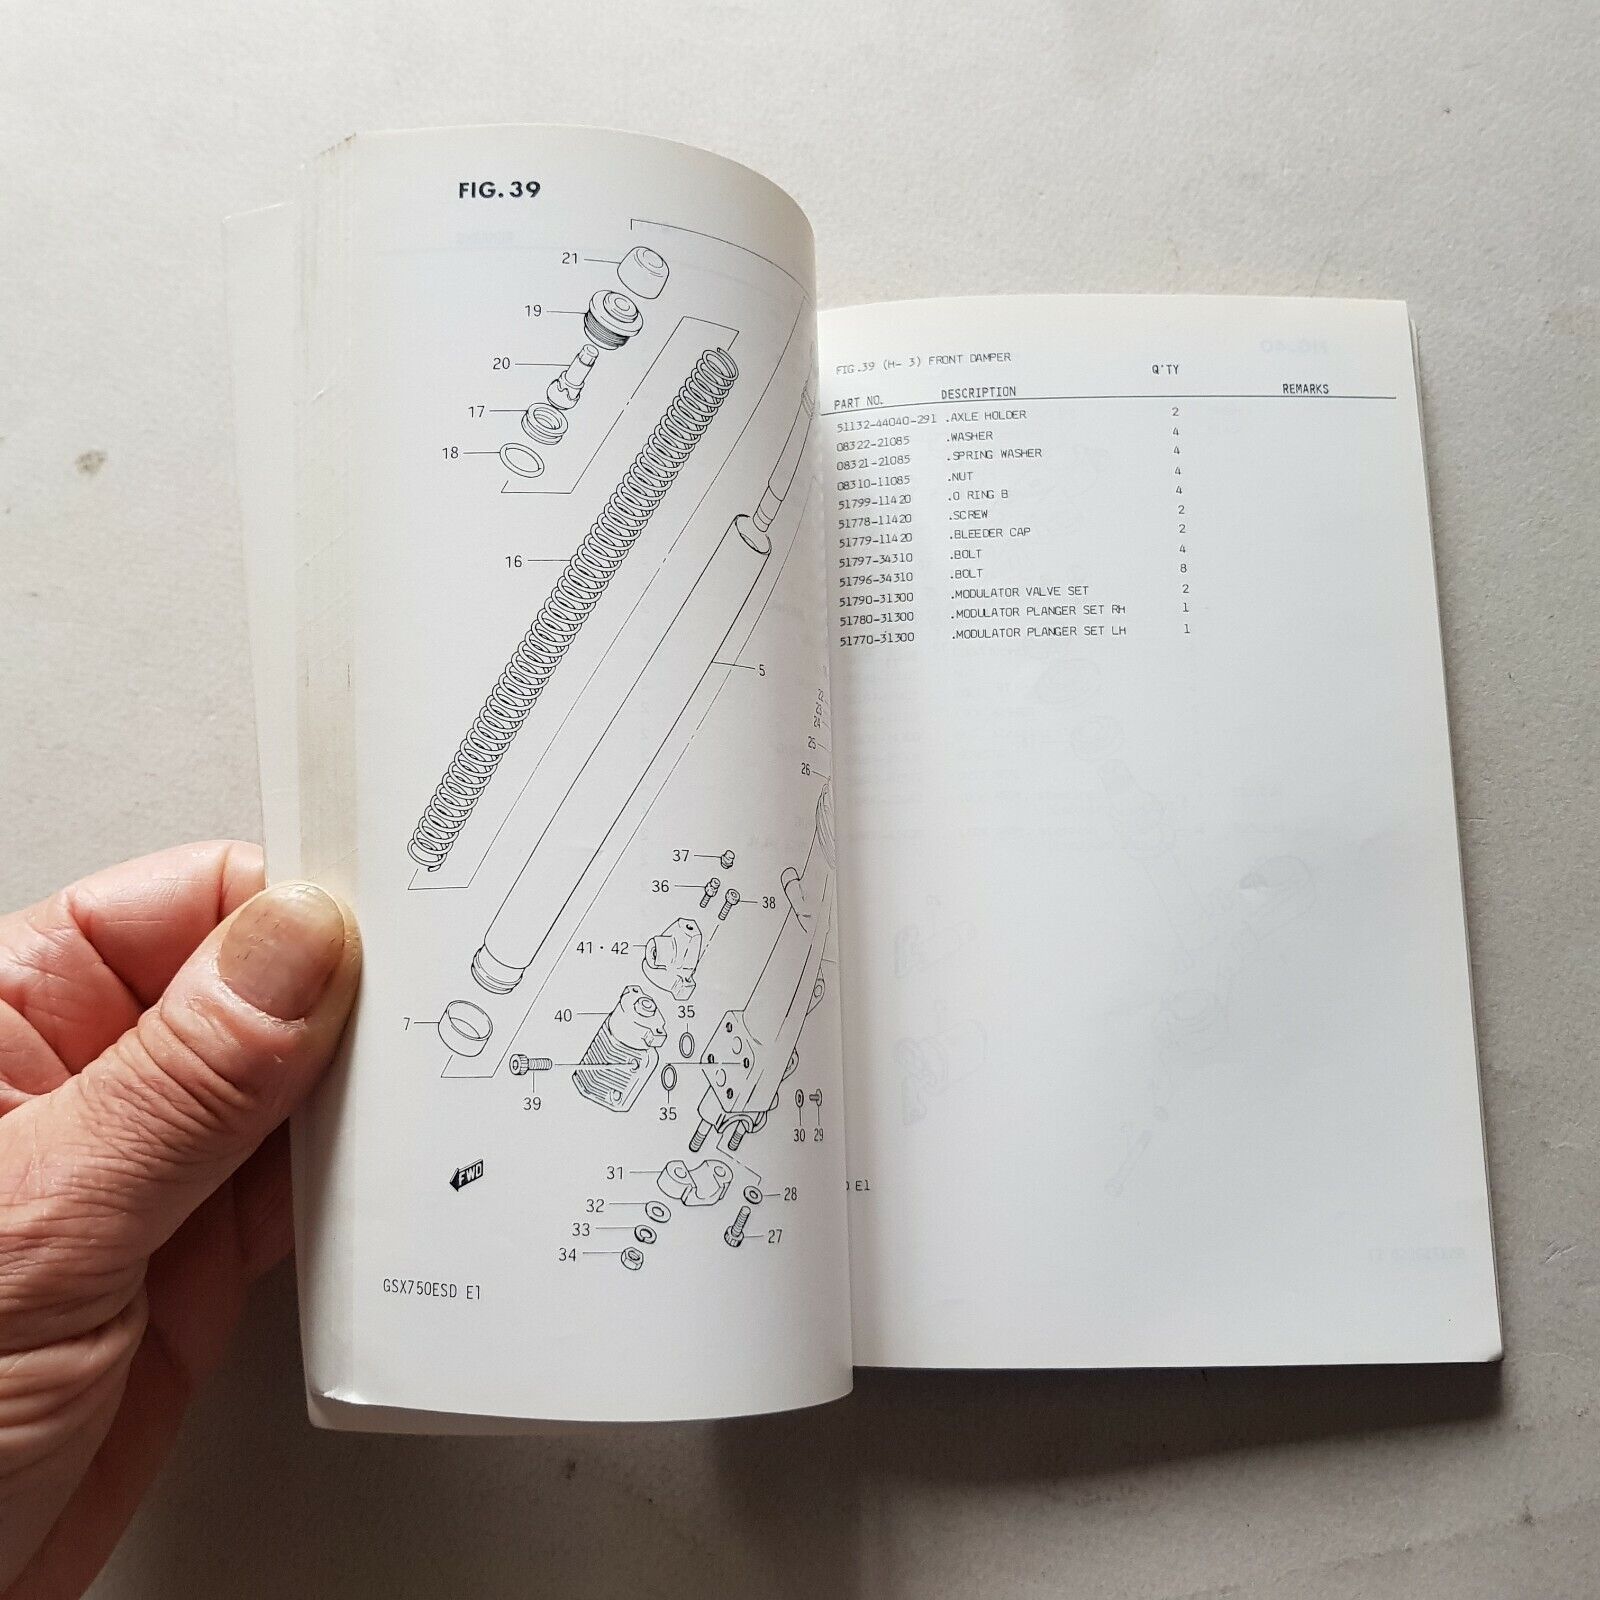 FIG. 39
21
19
20
17
18
16
5
22
23
24
25
26
37
36
38
41・42
40
35
7
39
35
30 29
31
28
32
33
27
34
FWD
GSX750ESD E1
FIG.39 (H- 3) FRONT DAMPER
PART NO. DESCRIPTION Q'TY REMARKS
51132-44040-291 .AXLE HOLDER 2
08322-21085 .WASHER 4
08321-21085 .SPRING WASHER 4
08310-11085 .NUT 4
51799-11420 .O RING B 4
51778-11420 .SCREW 2
51779-11420 .BLEEDER CAP 2
51797-34310 .BOLT 4
51796-34310 .BOLT 8
51790-31300 .MODULATOR VALVE SET 2
51780-31300 .MODULATOR PLANGER SET RH 1
51770-31300 .MODULATOR PLANGER SET LH 1
E1